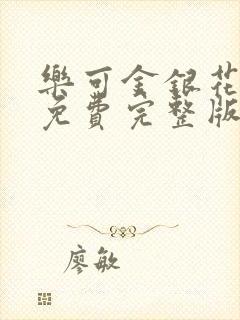 樂可金銀花
免費完整版
廖敏